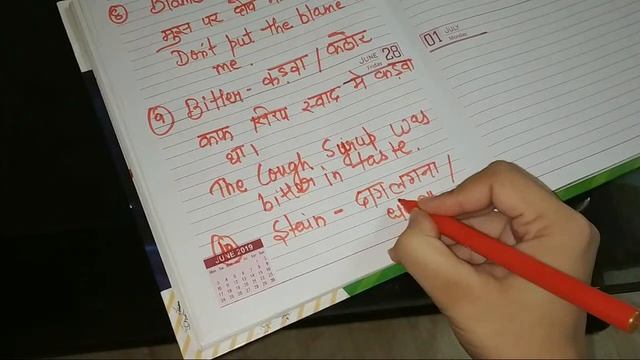 ⑧ Blame
मुझ पर दोष
Don't put the blame
me.
JUNE 28
Friday
⑨ Bitter - कड़वा / कठोर
कफ सिरप स्वाद मे कड़वा
था।
The Cough Syrup was
bitter in taste.
⑩ Stein - दाग लगना /
JUNE 2019
01 JULY
Monday